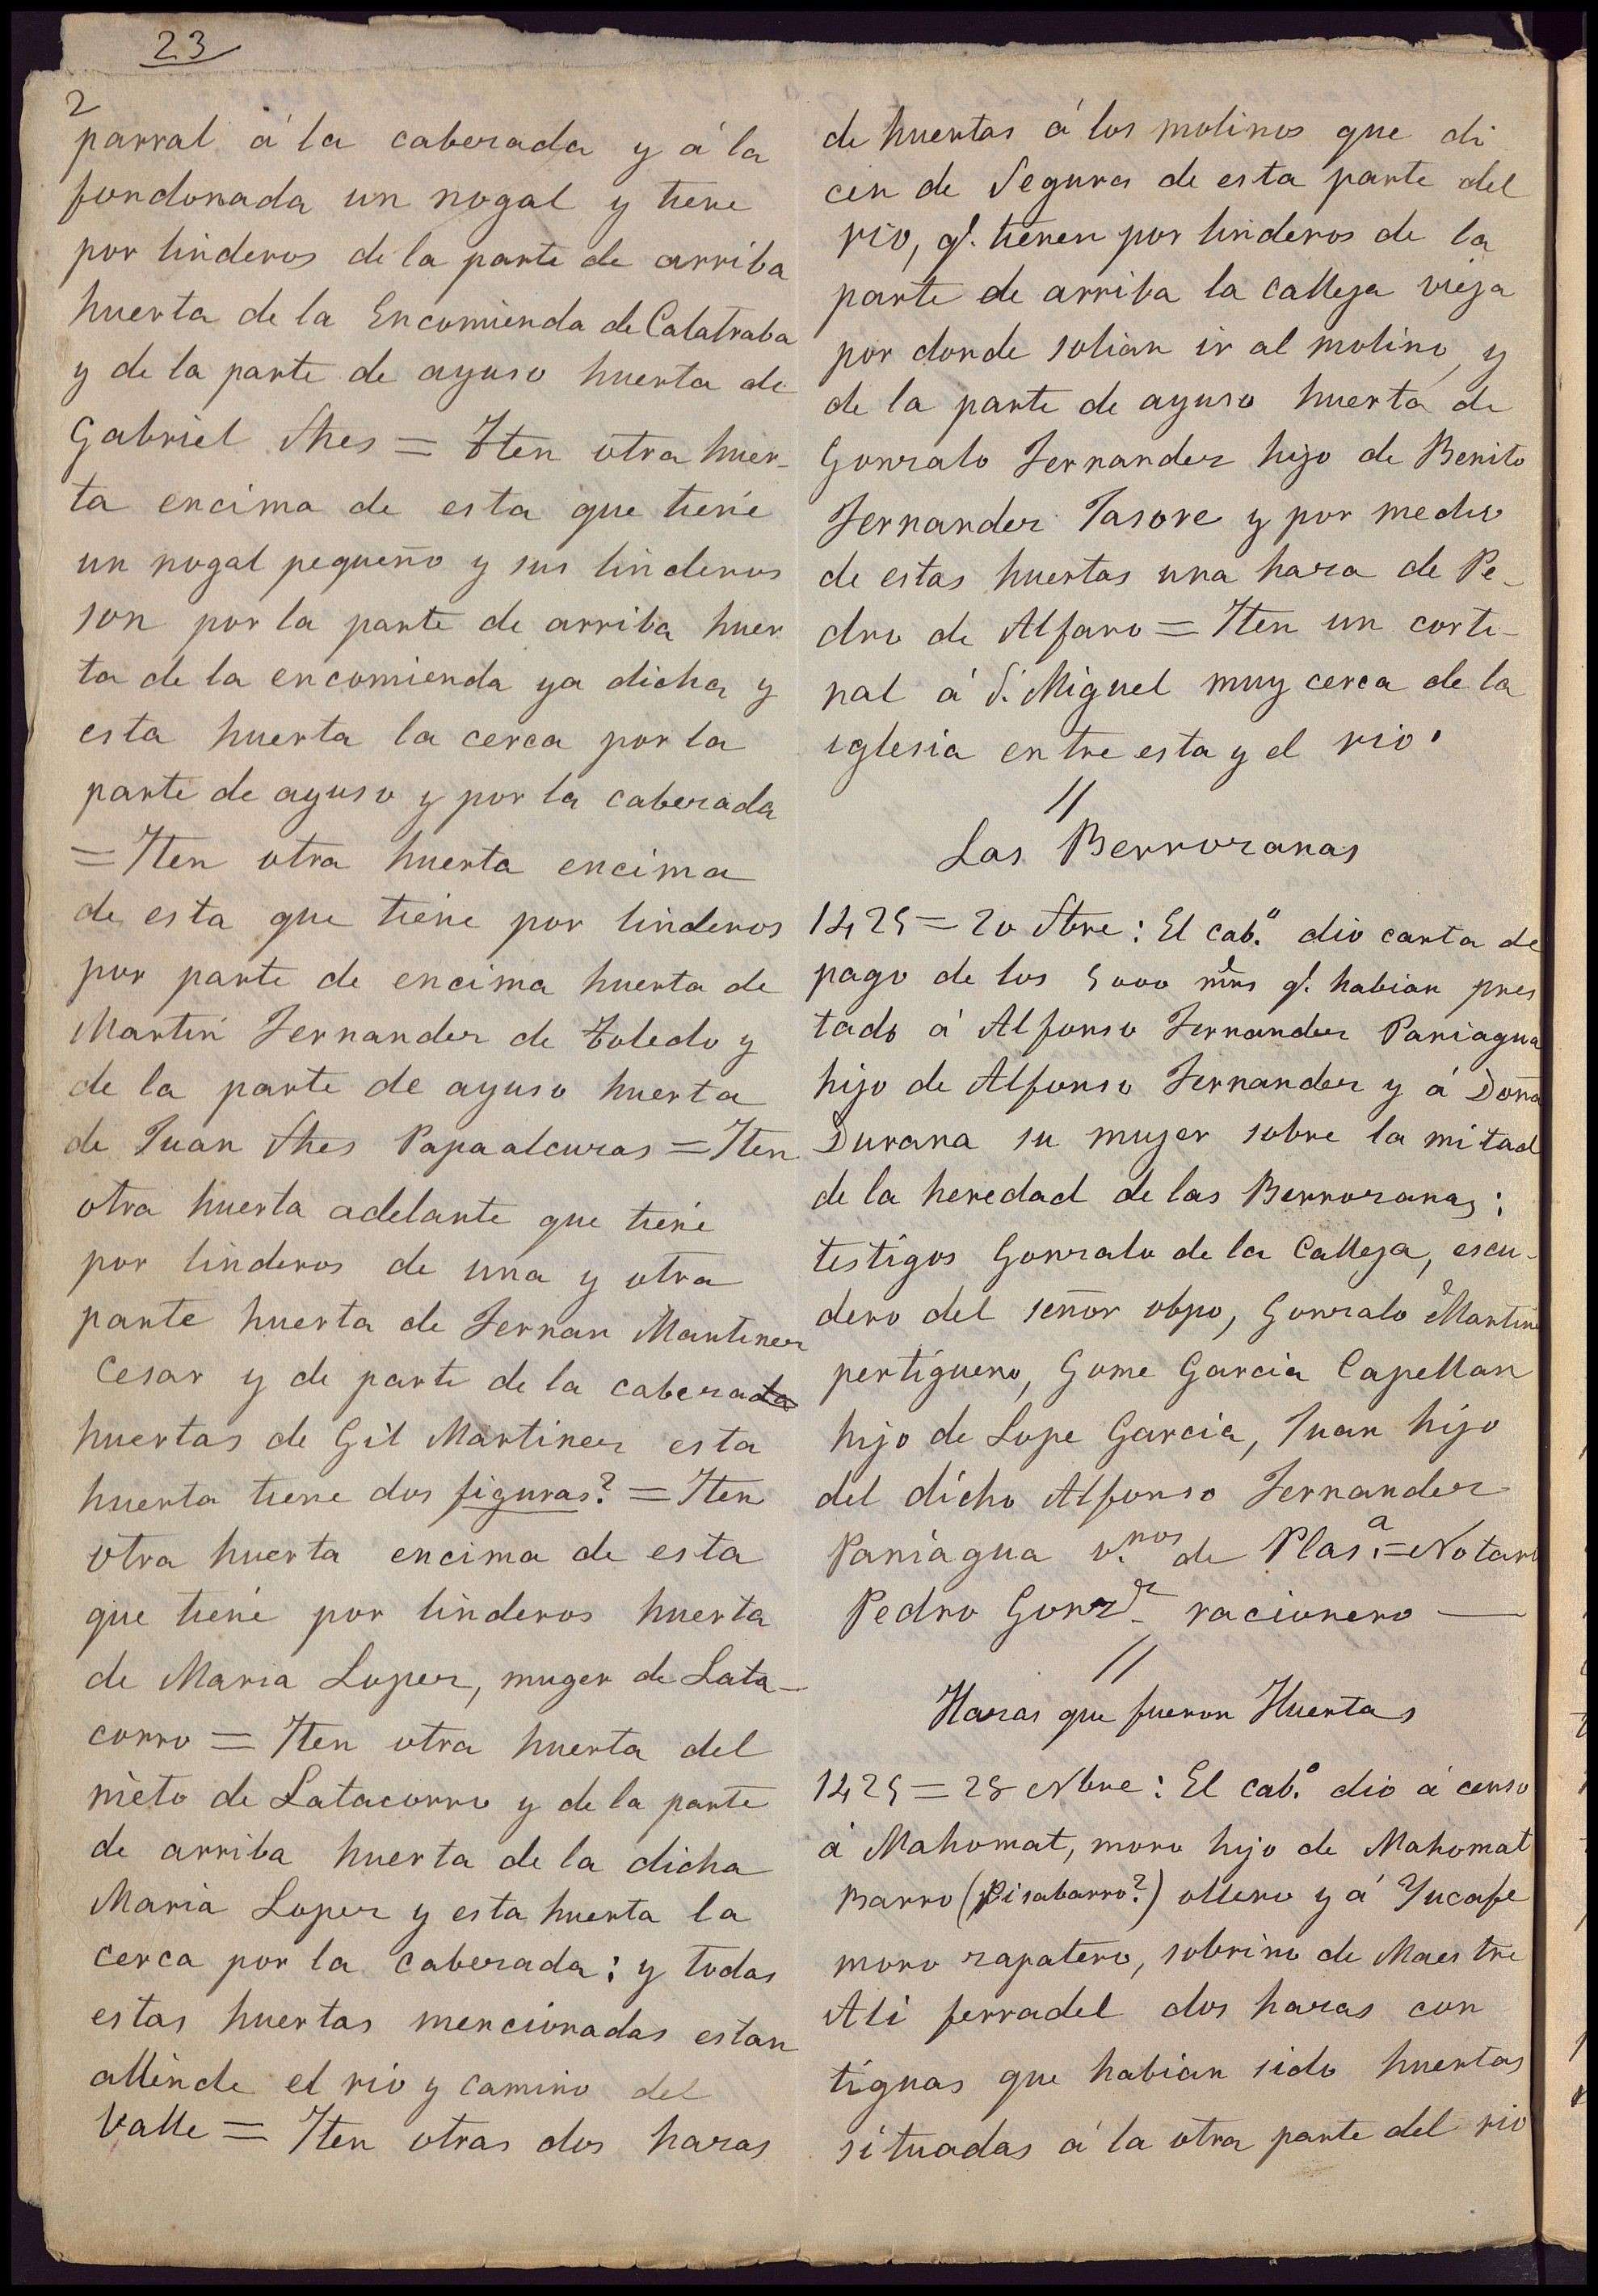 23
2
parral á la caberada y á la
fondonada un nogal y tiene
por linderos de la parte de arriba
huerta de la Encomienda de Calatraba
y de la parte de ayuso huerta de
Gabriel Shes = Iten otra huer-
ta encima de esta que tiene
un nogal pequeño y sus linderos
son por la parte de arriba huer
ta de la encomienda ya dicha y
esta huerta la cerca por la
parte de ayuso y por la caberada
= Iten otra huerta encima
de esta que tiene por linderos
por parte de encima huerta de
Martin Fernandez de Toledo y
de la parte de ayuso huerta
de Juan Shes Papaalcuzas = Iten
otra huerta adelante que tiene
por linderos de una y otra
parte huerta de Fernan Martinez
Cesar y de parte de la caberada
huertas de Gil Martinez esta
huerta tiene dos figuras? = Iten
otra huerta encima de esta
que tiene por linderos huerta
de Maria Lopez, muger de Lata-
corro = Iten otra huerta del
nieto de Latacorro y de la parte
de arriba huerta de la dicha
Maria Lopez y esta huerta la
cerca por la caberada; y todas
estas huertas mencionadas estan
allende el rio y camino del
Valle = Iten otras dos hazas
de huertas á los molinos que di
cen de Segura de esta parte del
rio, q.e tienen por linderos de la
parte de arriba la calleja vieja
por donde solian ir al molino, y
de la parte de ayuso huerta de
Gonzalo Fernandez hijo de Benito
Fernandez Tasore y por medio
de estas huertas una haza de Pe-
dro de Alfaro = Iten un corti-
nal á S. Miguel muy cerca de la
iglesia entre esta y el rio.
//
Las Berrozanas
1425 = 20 Sbre: El cab.o dio carta de
pago de los 5000 mrs q.e habian pres
tado á Alfonso Fernandez Paniagua
hijo de Alfonso Fernandez y á Doña
Durana su mujer sobre la mitad
de la heredad de las Berrozanas;
testigos Gonzalo de la Calleja, escu-
dero del señor obpo, Gonzalo Martinez
pertiguero, Gome Garcia Capellan
hijo de Lope Garcia, Juan hijo
del dicho Alfonso Fernandez
Paniagua v.nos de Plas.a = Notario
Pedro Gonz.z racionero —
//
Hazas que fueron Huertas
1425 = 28 Nbre: El cab.o dio á censo
á Mahomat, moro hijo de Mahomat
Barro (Pisabarro?) ollero y á Yucafe
moro zapatero, sobrino de Maestre
Ali ferradel dos hazas con
tiguas que habian sido huertas
situadas á la otra parte del rio